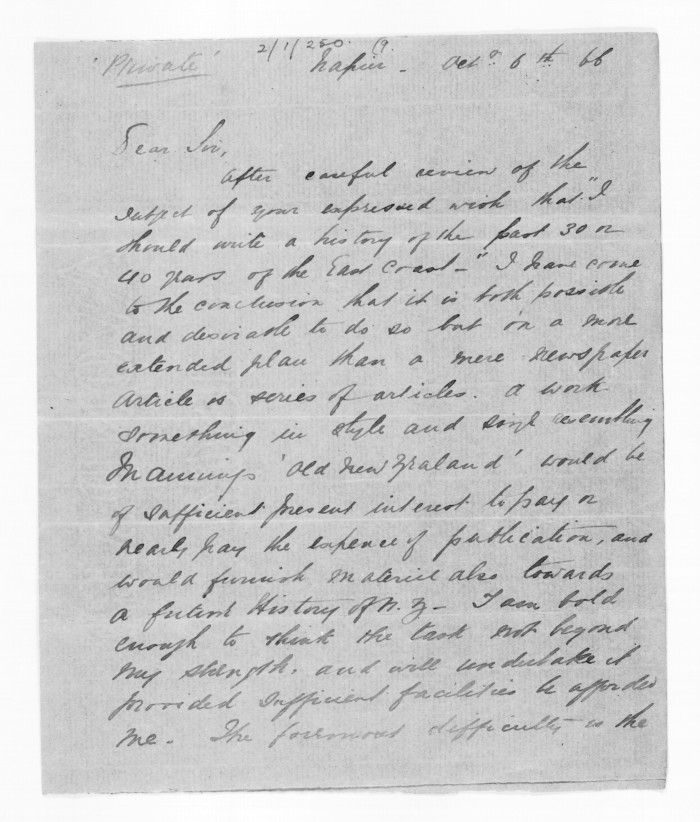 'Private'
2/1/250. (9.
Napier - Octr 6th 66
Dear Sir,
After careful review of the
subject of your expressed wish that "I
should write a history of the past 30 or
40 years of the East Coast -" I have come
to the conclusion that it is both possible
and desirable to do so but on a more
extended plan than a mere newspaper
Article or series of articles. A work
something in style and size resembling
Mannings 'Old New Zealand' would be
of sufficient present interest to pay or
nearly pay the expence of publication, and
would furnish material also towards
a future History of N. Z. - I am bold
enough to think the task not beyond
my strength, and will undertake it
provided sufficient facilities be afforded
me - The foremost difficulty is the